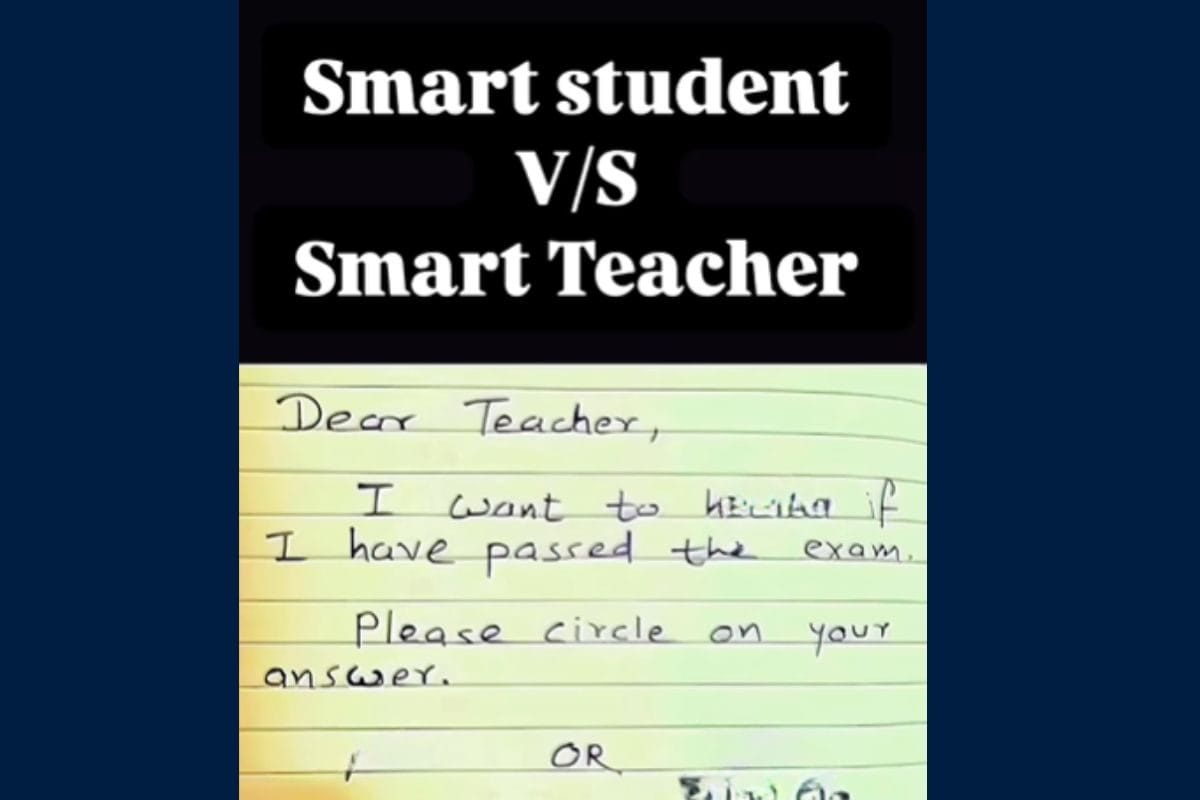 Smart student
V/S
Smart Teacher
Dear Teacher,
I want to if
I have passed the exam.
Please circle on your
answer.
OR